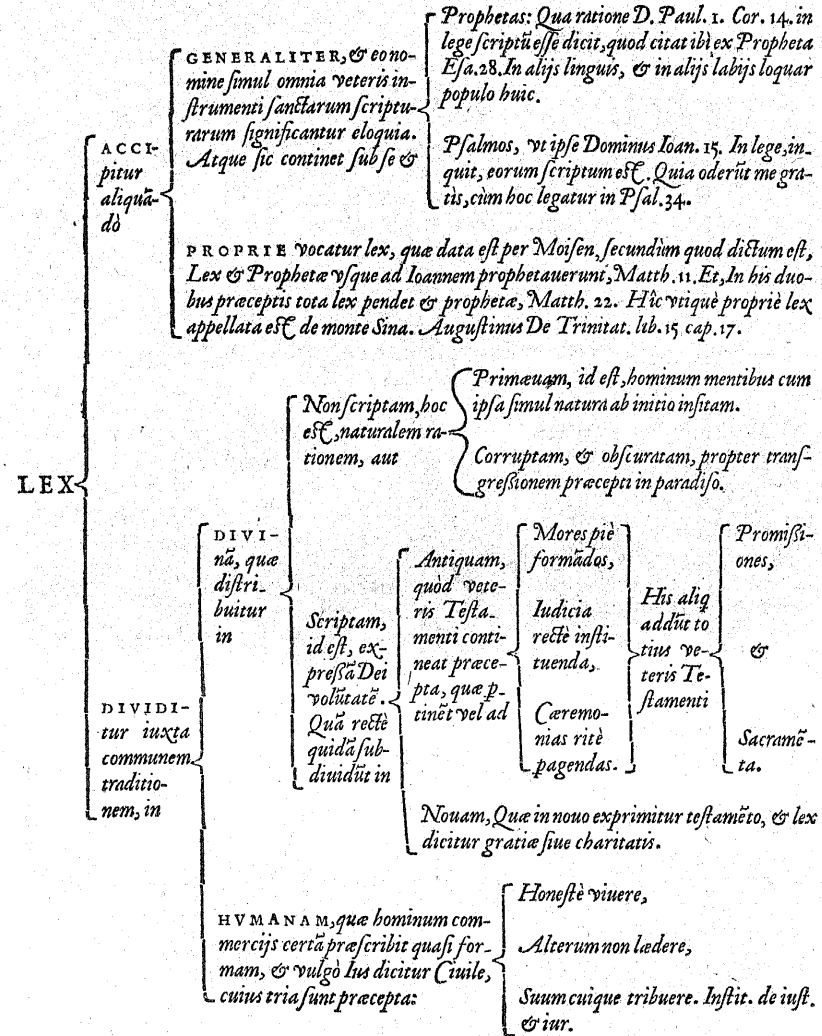 LEX
ACCI-
pitur
aliquã-
dò
GENERALITER, & eo no-
mine simul omnia veteris in-
strumenti sanctarum scriptu-
rarum significantur eloquia.
Atque sic continet sub se &
Prophetas: Qua ratione D. Paul. 1. Cor. 14. in
lege scriptũ esse dicit, quod citat ibi ex Propheta
Esa. 28. In alijs linguis, & in alijs labijs loquar
populo huic.
Psalmos, vt ipse Dominus Ioan. 15. In lege, in-
quit, eorum scriptum est. Quia oderũt me gra-
tis, cùm hoc legatur in Psal. 34.
PROPRIE vocatur lex, quæ data est per Moisen, secundùm quod dictum est,
Lex & Prophetæ vsque ad Ioannem prophetauerunt, Matth. 11. Et, In his duo-
bus præceptis tota lex pendet & prophetæ, Matth. 22. Hîc vtiquè propriè lex
appellata est de monte Sina. Augustinus De Trinitat. lib. 15 cap. 17.
DIVIDI-
tur iuxta
communem
traditio-
nem, in
DIVI-
nã, quæ
distri-
buitur
in
Non scriptam, hoc
est, naturalem ra-
tionem, aut
Primæuam, id est, hominum mentibus cum
ipsa simul natura ab initio insitam.
Corruptam, & obscuratam, propter trans-
gressionem præcepti in paradiso.
Scriptam,
id est, ex-
pressã Dei
volũtatẽ.
Quã rectè
quidã sub-
diuidũt in
Antiquam,
quòd vete-
ris Testa-
menti conti-
neat præce-
pta, quæ p-
tinẽt vel ad
Mores piè
formãdos,
Iudicia
rectè insti-
tuenda,
Cæremo-
nias ritè
pagendas.
His aliq
addũt to
tius ve-
teris Te-
stamenti
Promissi-
ones,
&
Sacramẽ-
ta.
Nouam, Quæ in nouo exprimitur testamẽto, & lex
dicitur gratiæ siue charitatis.
HVMANAM, quæ hominum com-
mercijs certã præscribit quasi for-
mam, & vulgò Ius dicitur Ciuile,
cuius tria sunt præcepta:
Honestè viuere,
Alterum non lædere,
Suum cuique tribuere. Instit. de iust.
& iur.